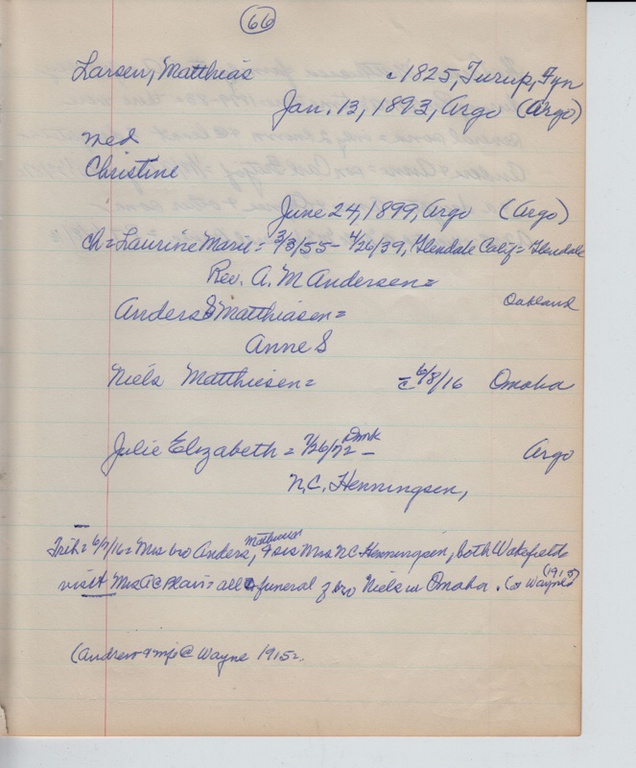 66
Larsen, Matthias c.1825, Turup, Fyn
Jan. 13, 1893, Argo (Argo)
med
Christine
June 24, 1899, Argo (Argo)
Ch = Laurine Marie = 3/3/55 - 4/26/39, Glendale Calif = Glendale
Rev. A. M Andersen =
Oakland
Anders S Matthiasen =
Anne S
Niels Matthiesen = 6/8/16 Omaha
Julie Elizabeth = 7/26/72 Dmk - Argo
N.C. Henningsen,
Trib = 6/7/16 = Mrs bro Anders Mathiesen, & sis Mrs N C Henningsen, both Wakefield
visit Mrs A C Plair = all funeral of bro Niels in Omaha. (or Wayne) (1915)
(Andrew & mf @ Wayne 1915 =